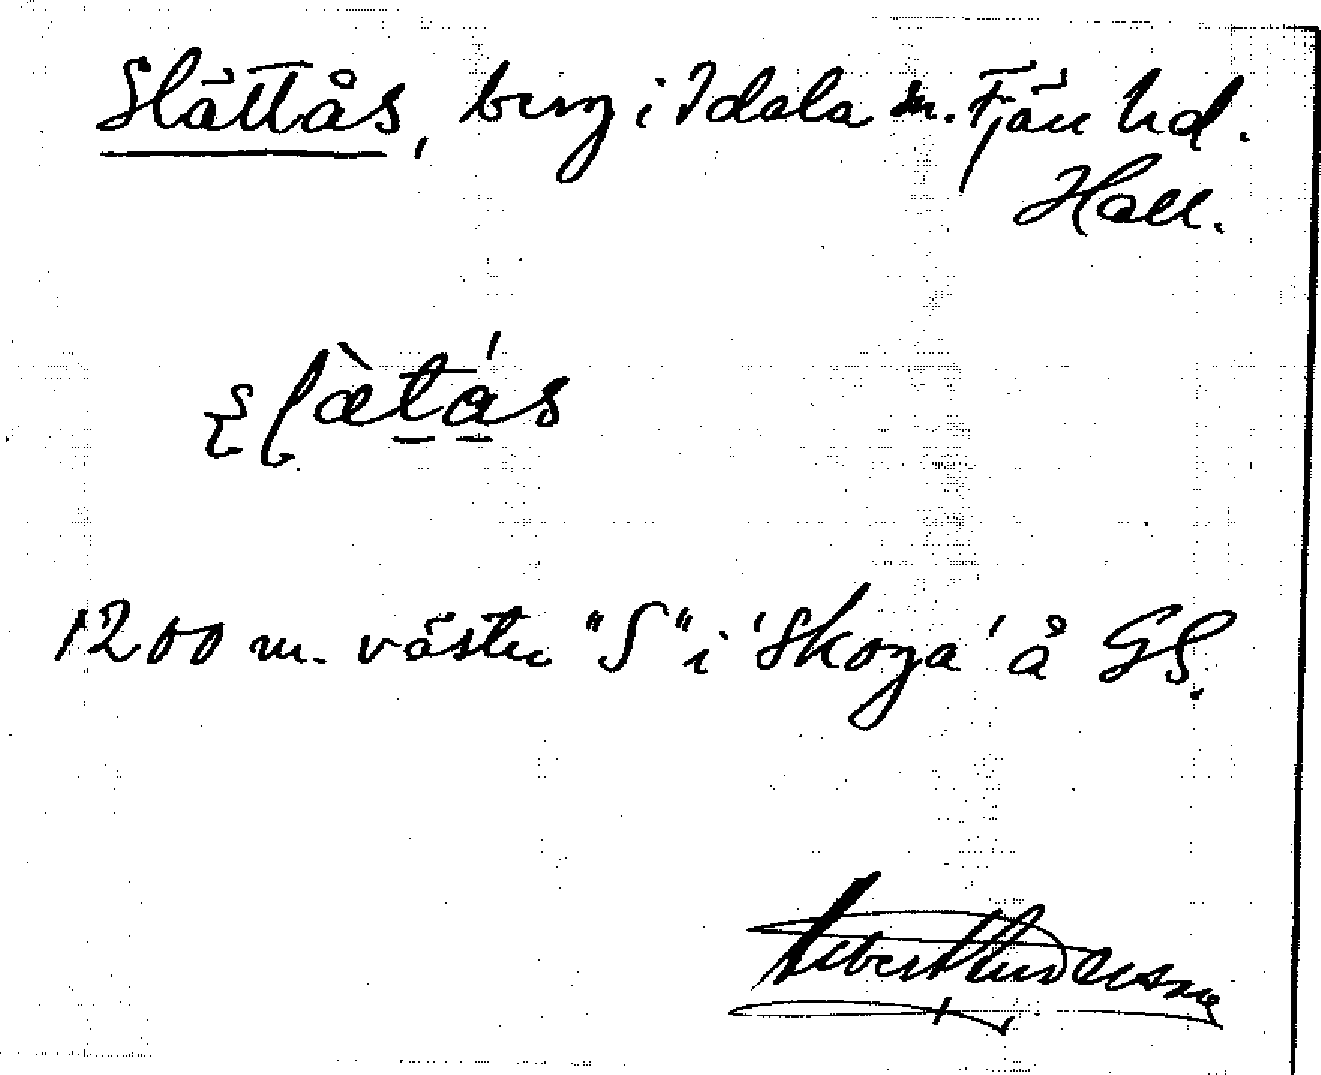 Slättås, berg i Idala sn. Fjäre hd.
Hall.
1200 m. väster "S" i 'Skoga' å GS.
Albert Andersson